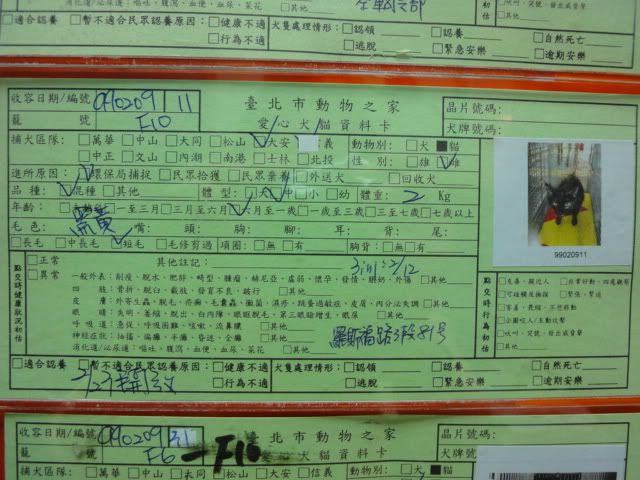 □適合認養 □暫不適合民眾認養原因：□健康不適 □行為不適 犬隻處理情形：□認領 □認養 □自然死亡
□逃脫 □緊急安樂 □逾期安樂
收容日期/編號 990209 11 臺北市動物之家 晶片號碼：
籠號 F10 愛心犬貓資料卡 犬牌號碼：
捕犬區隊：□萬華 □中山 □大同 □松山 ☑大安 □信義 動物別：□犬 ■貓
□中正 □文山 □內湖 □南港 □士林 □北投 性別：□雄 ☑雌
進所原因：☑環保局捕捉 □民眾拾獲 □民眾棄養 □外送犬 □回收犬
品種：☑混種 □其他 體型：□大 ☑中 □小 □幼 體重：2 Kg
年齡： □一至三月 □三月至六月 ☑六月至一歲 □一歲至三歲 □三至七歲 □七歲以上
毛色：黑黃 嘴： 頭： 胸： 腳： 耳： 背： 尾：
□長毛 □中長毛 ☑短毛 □毛修剪過 項圈：□無 □有 胸背：□無 □有
99020911
點交時健康狀況初估
□正常 其他註記： 2/12
□異常 一般外表：削瘦、脫水、肥胖、畸型、腫瘤、赫尼亞、虛弱、懷孕、發情、哺奶、外傷 □其他
四肢：骨折、脫臼、截肢、發育不良、跛行 □其他
皮膚：外寄生蟲、脫毛、疥癬、毛囊蟲、黴菌、濕疹、跳蚤過敏症、皮屑、內分泌失調 □其他
眼睛：失明、萎縮、脫出、白內障、眼瞼脫毛、第三眼瞼增生、眼屎 □其他
呼吸道：急促、呼吸困難、咳嗽、流鼻膿 □其他
神經症狀：抽搐、偏癱、半癱、昏迷、全癱 □其他
消化道/泌尿道：嘔吐、腹瀉、血便、血尿、菜花 □其他
羅斯福路2段81號
點交時行為初估
□友善、親近人 □非常好動、四處觀察
□可碰觸度撫摸 □緊張、緊迫
□害羞、畏縮、不想移動
□企圖咬人/主動攻擊
□吠叫、哭號、發出威脅聲
□其他
□適合認養 □暫不適合民眾認養原因：□健康不適 □行為不適 犬隻處理情形：□認領 □認養 □自然死亡
□逃脫 □緊急安樂 □逾期安樂
2/23開放
收容日期/編號 990209 31 臺北市動物之家 晶片號碼：
籠號 F6 → F10 愛心犬貓資料卡 犬牌號碼：
捕犬區隊：□萬華 □中山 □大同 □松山 □大安 □信義 動物別：□犬 ■貓